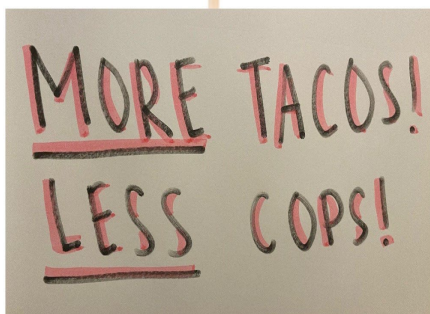 MORE TACOS!
LESS COPS!